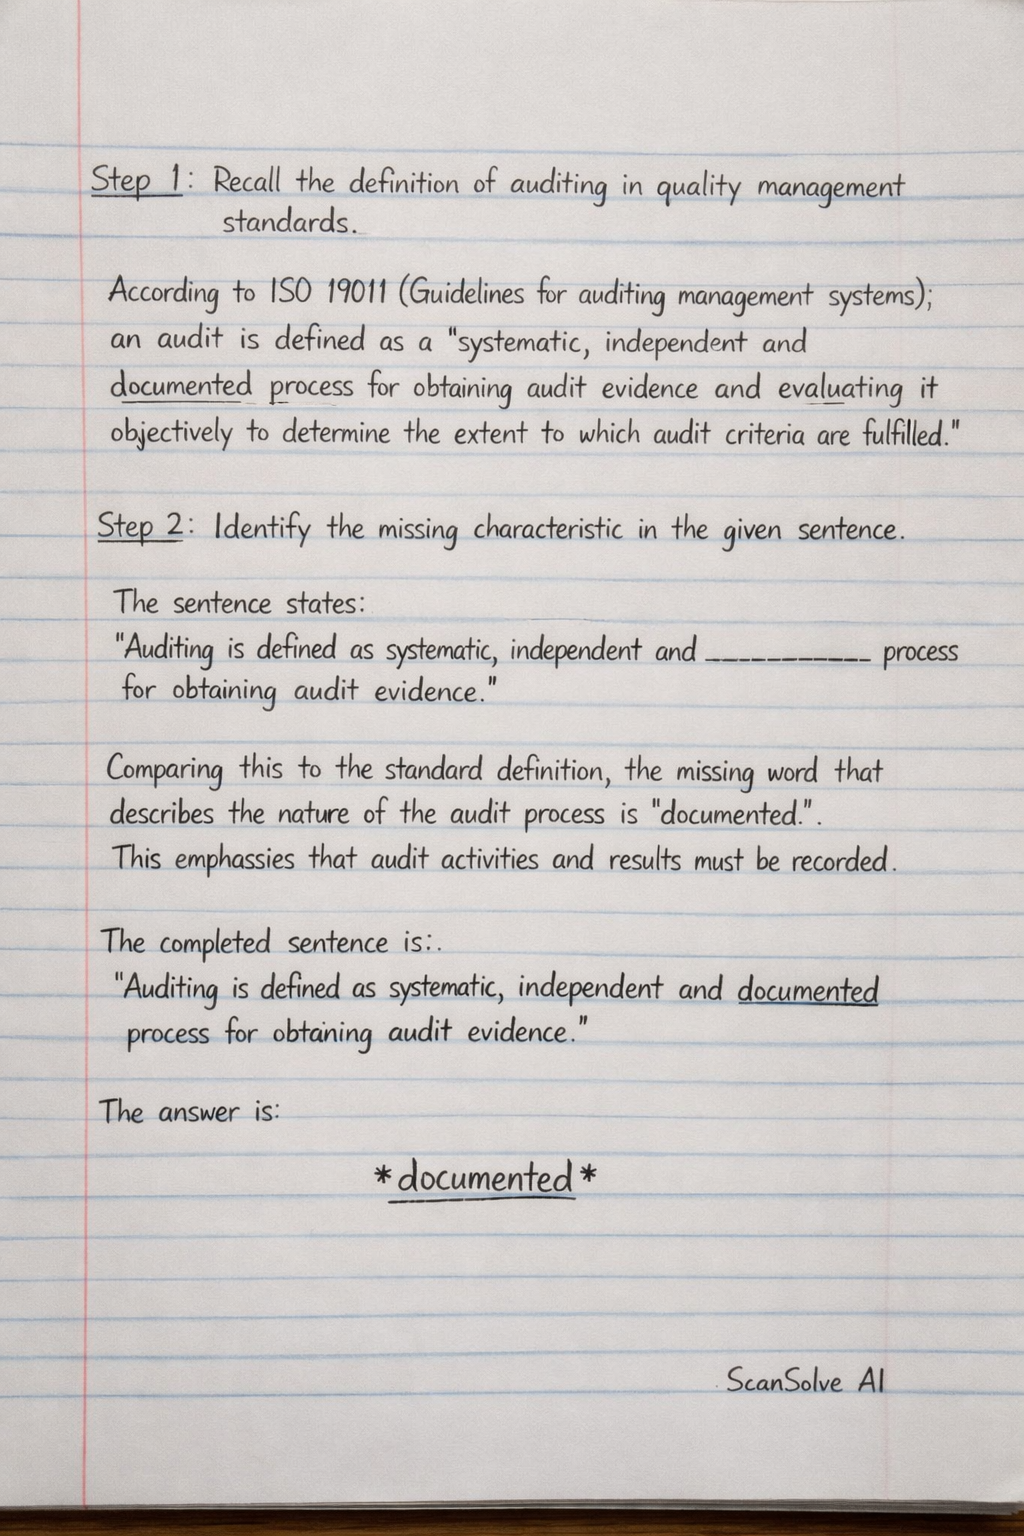 Step 1: Recall the definition of auditing in quality management
standards.
According to ISO 19011 (Guidelines for auditing management systems);
an audit is defined as a "systematic, independent and
documented process for obtaining audit evidence and evaluating it
objectively to determine the extent to which audit criteria are fulfilled."
Step 2: Identify the missing characteristic in the given sentence.
The sentence states:
"Auditing is defined as systematic, independent and ___________ process
for obtaining audit evidence."
Comparing this to the standard definition, the missing word that
describes the nature of the audit process is "documented.".
This emphassies that audit activities and results must be recorded.
The completed sentence is:.
"Auditing is defined as systematic, independent and documented
process for obtaining audit evidence."
The answer is:
*documented*
ScanSolve AI